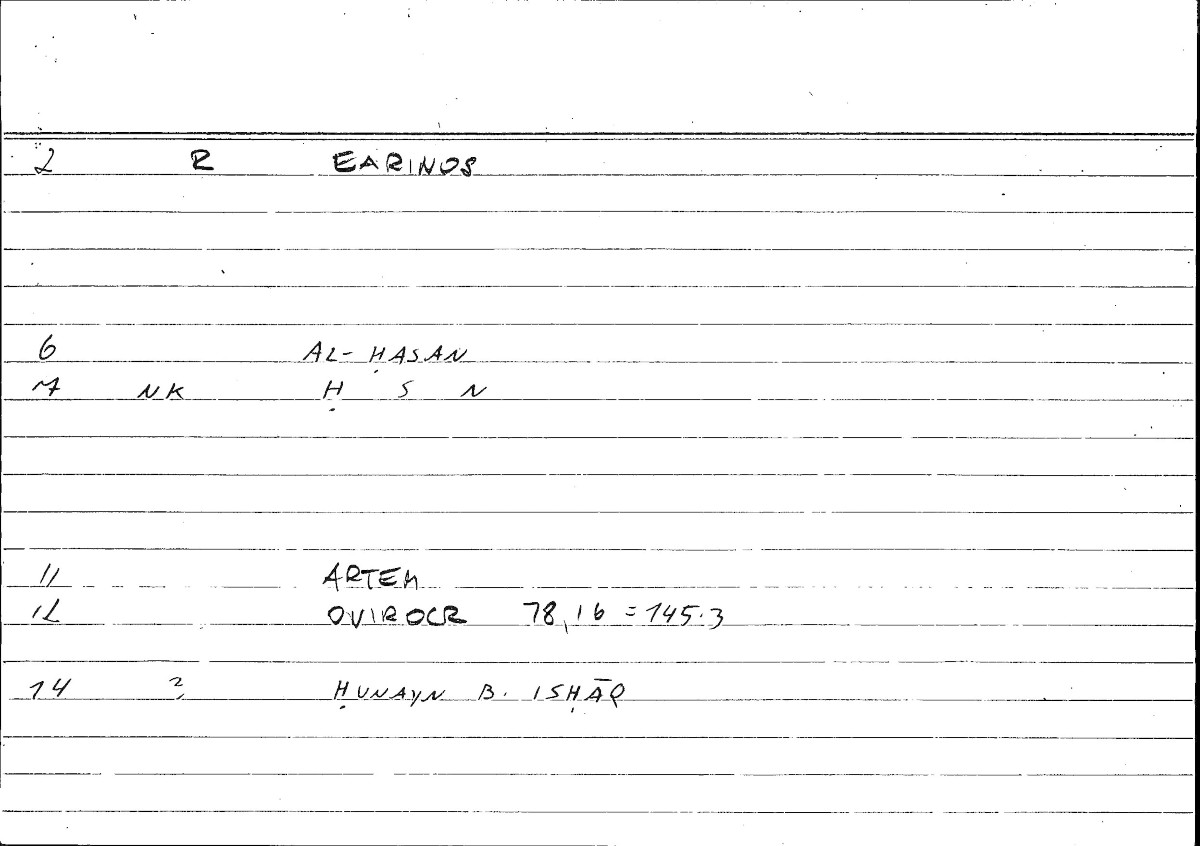 2 R EARINOS
6 AL-ḤASAN
7 NK Ḥ S N
11 ARTEM
12 OVIROCR 78,16 = 145.3
14 ? ḤUNAYN B. ISḤĀQ